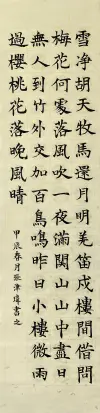 雪净胡天牧馬還月明羌笛戍樓間借問
梅花何處落風吹一夜滿関山山中盡日
無人到竹外交加百鳥鳴昨日小樓微雨
過櫻桃花落晚風晴
甲辰春月津書之